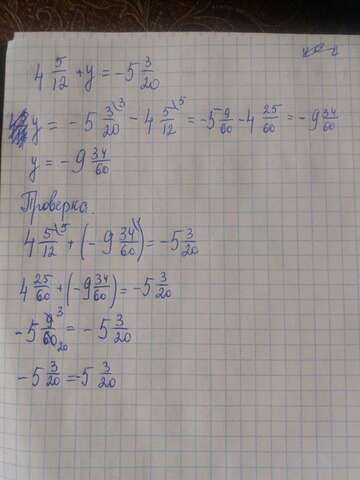 4 5/12 + y = -5 3/20
y = -5 3/20 \3 - 4 5/12 \5 = -5 9/60 - 4 25/60 = -9 34/60
y = -9 34/60
Проверка.
4 5/12 \5 + (-9 34/60 \) = -5 3/20
4 25/60 + (-9 34/60) = -5 3/20
-5 9/60 3 20 = -5 3/20
-5 3/20 = -5 3/20